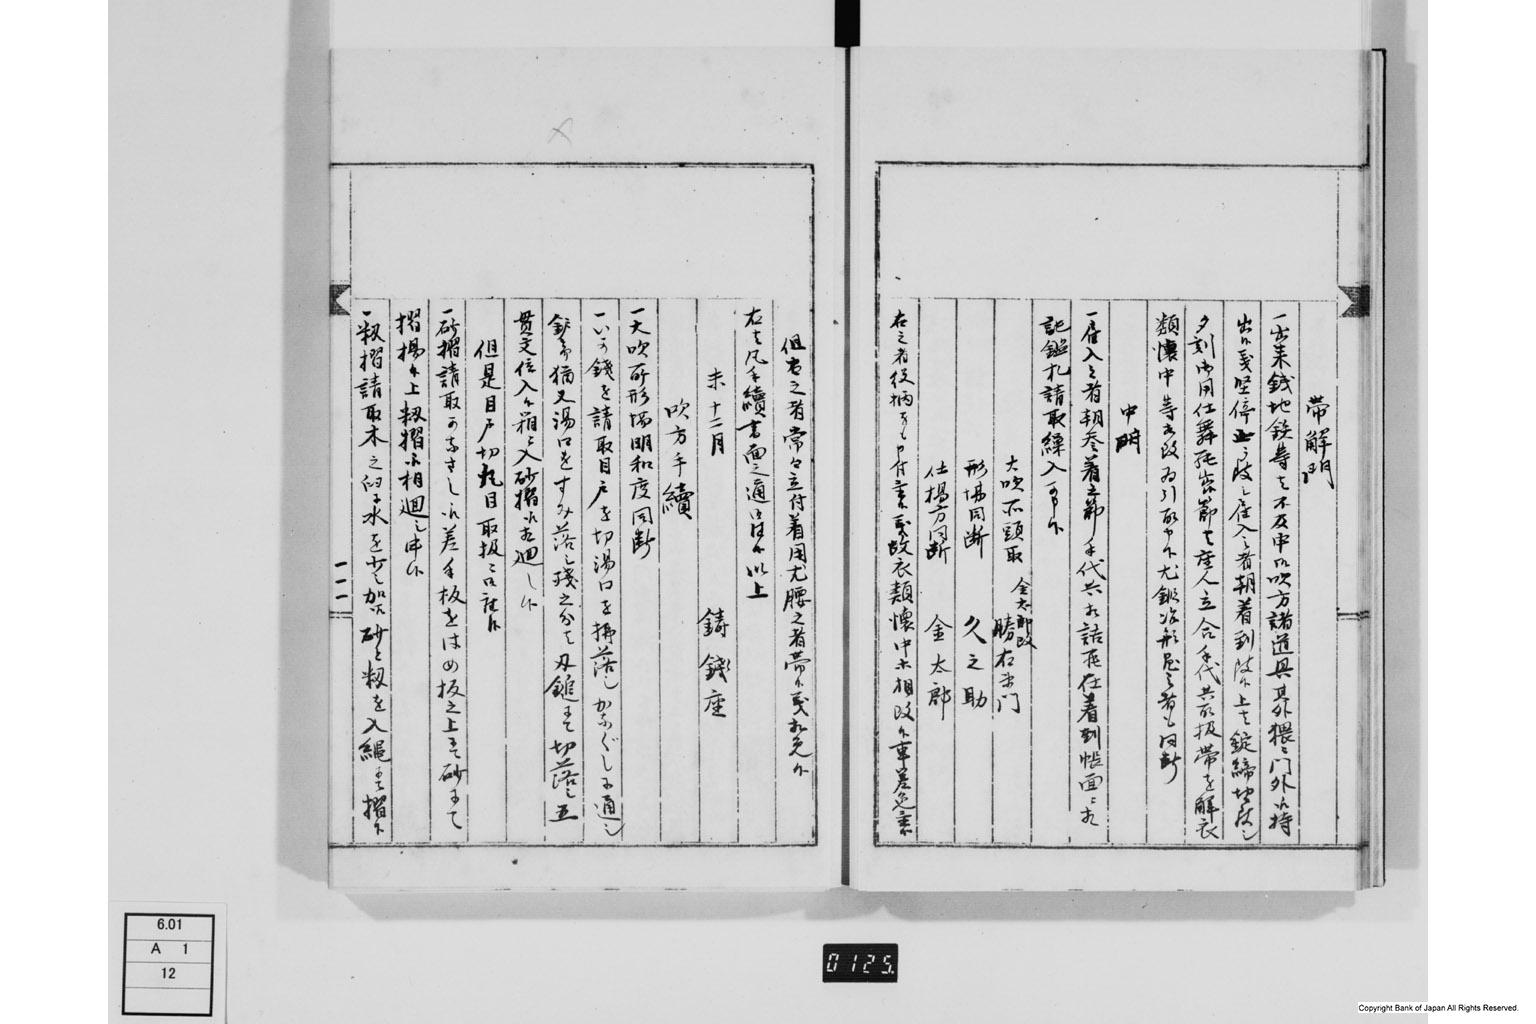 帯解門
一出来銭地鉄等者不及申ニ吹方諸道具其外猥ニ門外江持
出候義堅停止之改し居入之者朝着到改候上者錠締切改し
夕刻御用仕舞罷出候節者座人立合手代共取扱帯を解衣
類懐中等迄改為引取申候尤鍛冶形屋之者も同断
中門
一居入之者朝参着之節手代共相詰罷在着到帳面ニ相
記鑑札請取繰入可申候
大吹所頭取 金太郎改 勝右衛門
形場同断 久之助
仕揚方同断 金太郎
右之者役柄をも申付置候義故衣類懐中等相改候事差免置
但右之者常々立付着用尤腰之者帯候義相免候
右者凡手續書面之通御座候以上
未十二月 鋳銭座
吹方手續
一大吹所形場明和度同断
一いろ銭を請取目戸を切湯口を掃落しかなぐしニ通し
釻ニ而猶又湯口をすみ落し残之分者刃鎚ニ而切落し五
貫文位入候箱ニ入砂摺江相廻し候
但是目戸切丸目取扱ニ御座候
一砂摺請取かなさし江差手板をはめ板之上ニ而砂ニて
摺揚候上籾摺江相廻し申候
一籾摺請取木之臼ニ水を少し加江砂と籾を入縄ニ而摺候
一一一
0125.
6.01
A 1
12
Copyright Bank of Japan All Rights Reserved.